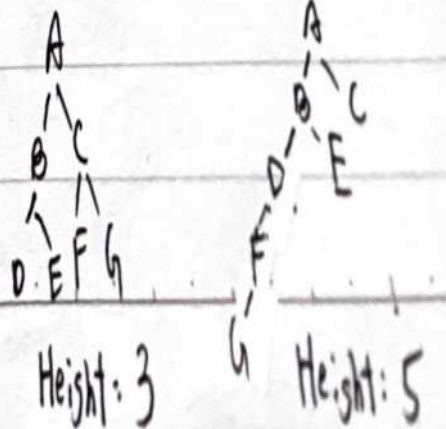 A
B C
D E F G
Height: 3
A
B C
D E
F
G
Height: 5